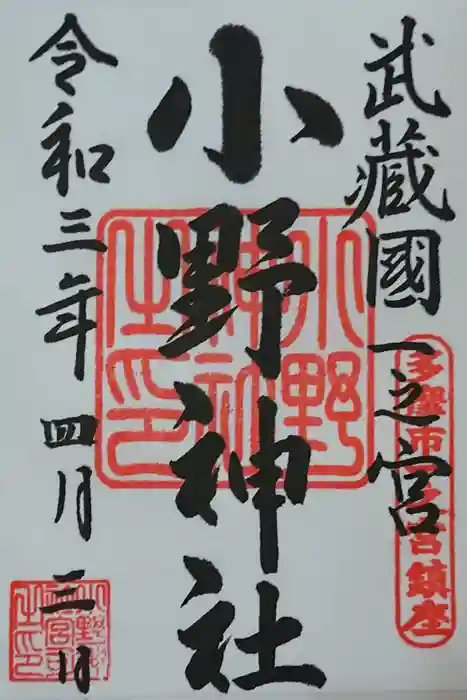 武藏國一之宮
多摩市一ノ宮鎮座
小野神社
小野神社之印
令和三年四月三日